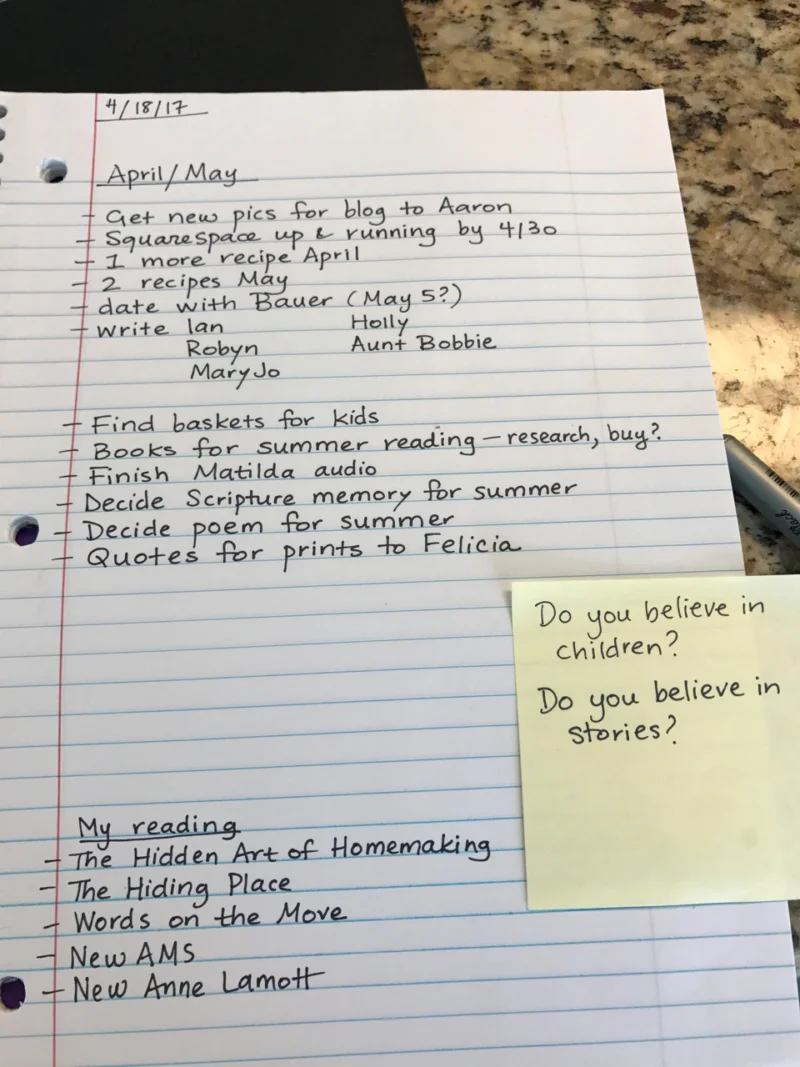 4/18/17
April/May
- Get new pics for blog to Aaron
- Squarespace up & running by 4/30
- 1 more recipe April
- 2 recipes May
- date with Bauer (May 5?)
- write Ian Holly
Robyn Aunt Bobbie
Mary Jo
- Find baskets for kids
- Books for summer reading - research, buy?
- Finish Matilda audio
- Decide Scripture memory for summer
- Decide poem for summer
- Quotes for prints to Felicia
Do you believe in
children?
Do you believe in
stories?
My reading
- The Hidden Art of Homemaking
- The Hiding Place
- Words on the Move
- New AMS
- New Anne Lamott
Black